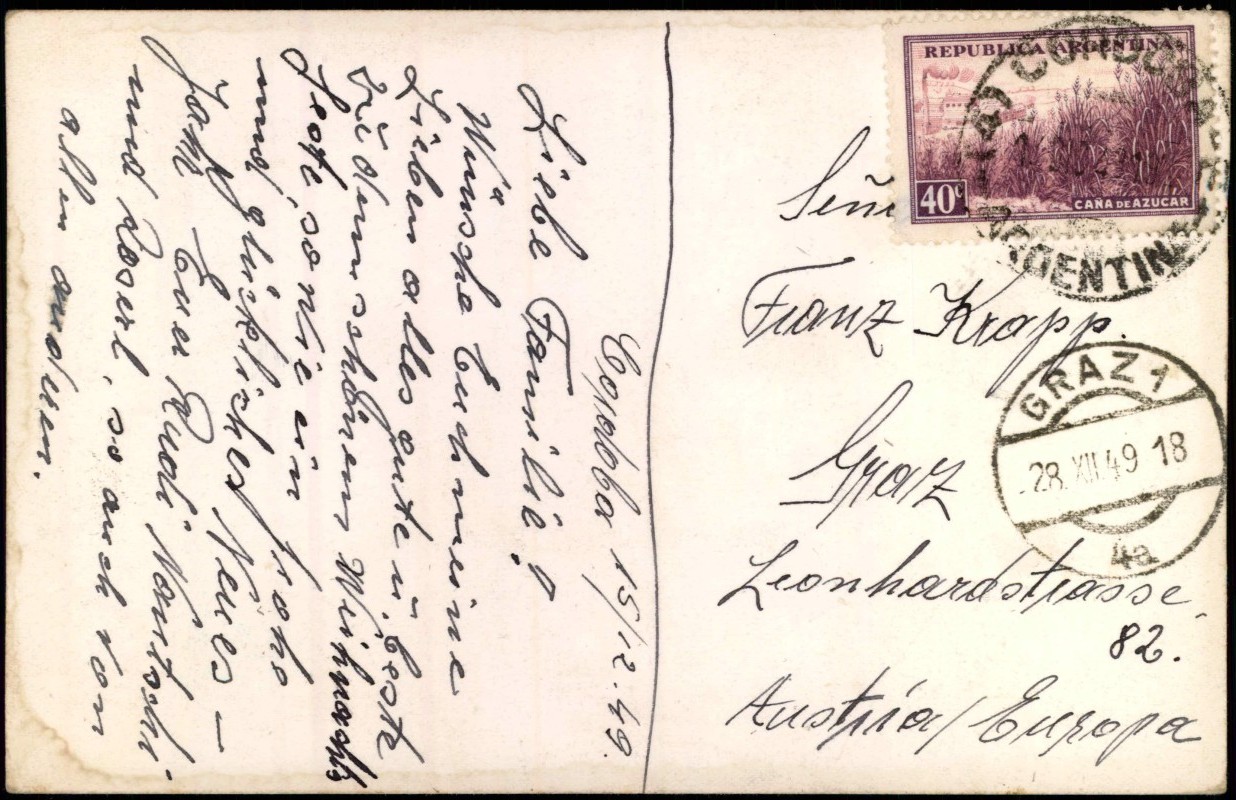 Cordoba 15/12.49.
Liebe Familie!
Wünsche Euch meine
Lieben alles gute u. beste
zu dem schönen Weihnachts
feste, sowie ein frohe
und glückliches Neues –
Jahr Euer Rudi
und Roserl, so auch von
allen anderen.
REPUBLICA ARGENTINA
40c
CAÑA DE AZUCAR
CORDOBA
ARGENTINA
Señ
Franz Krapp.
Graz
Leonhardstrasse
82.
Austria/Europa
GRAZ 1
28.XII.49 18
4a